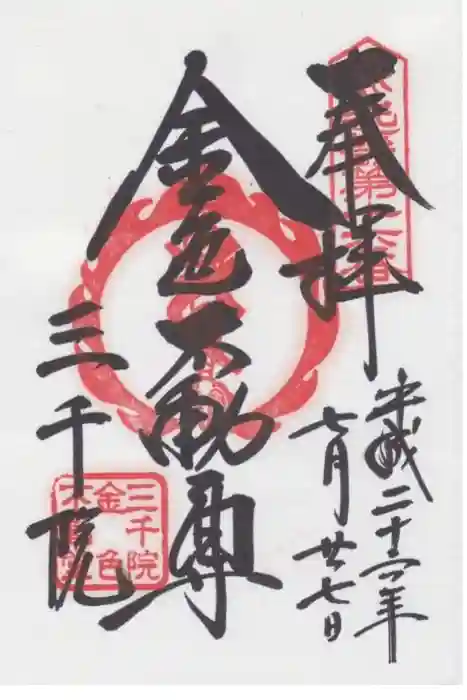 奉拝
平成二十六年
七月廿七日
金色不動尊
三千院
三千院
金色
不動尊